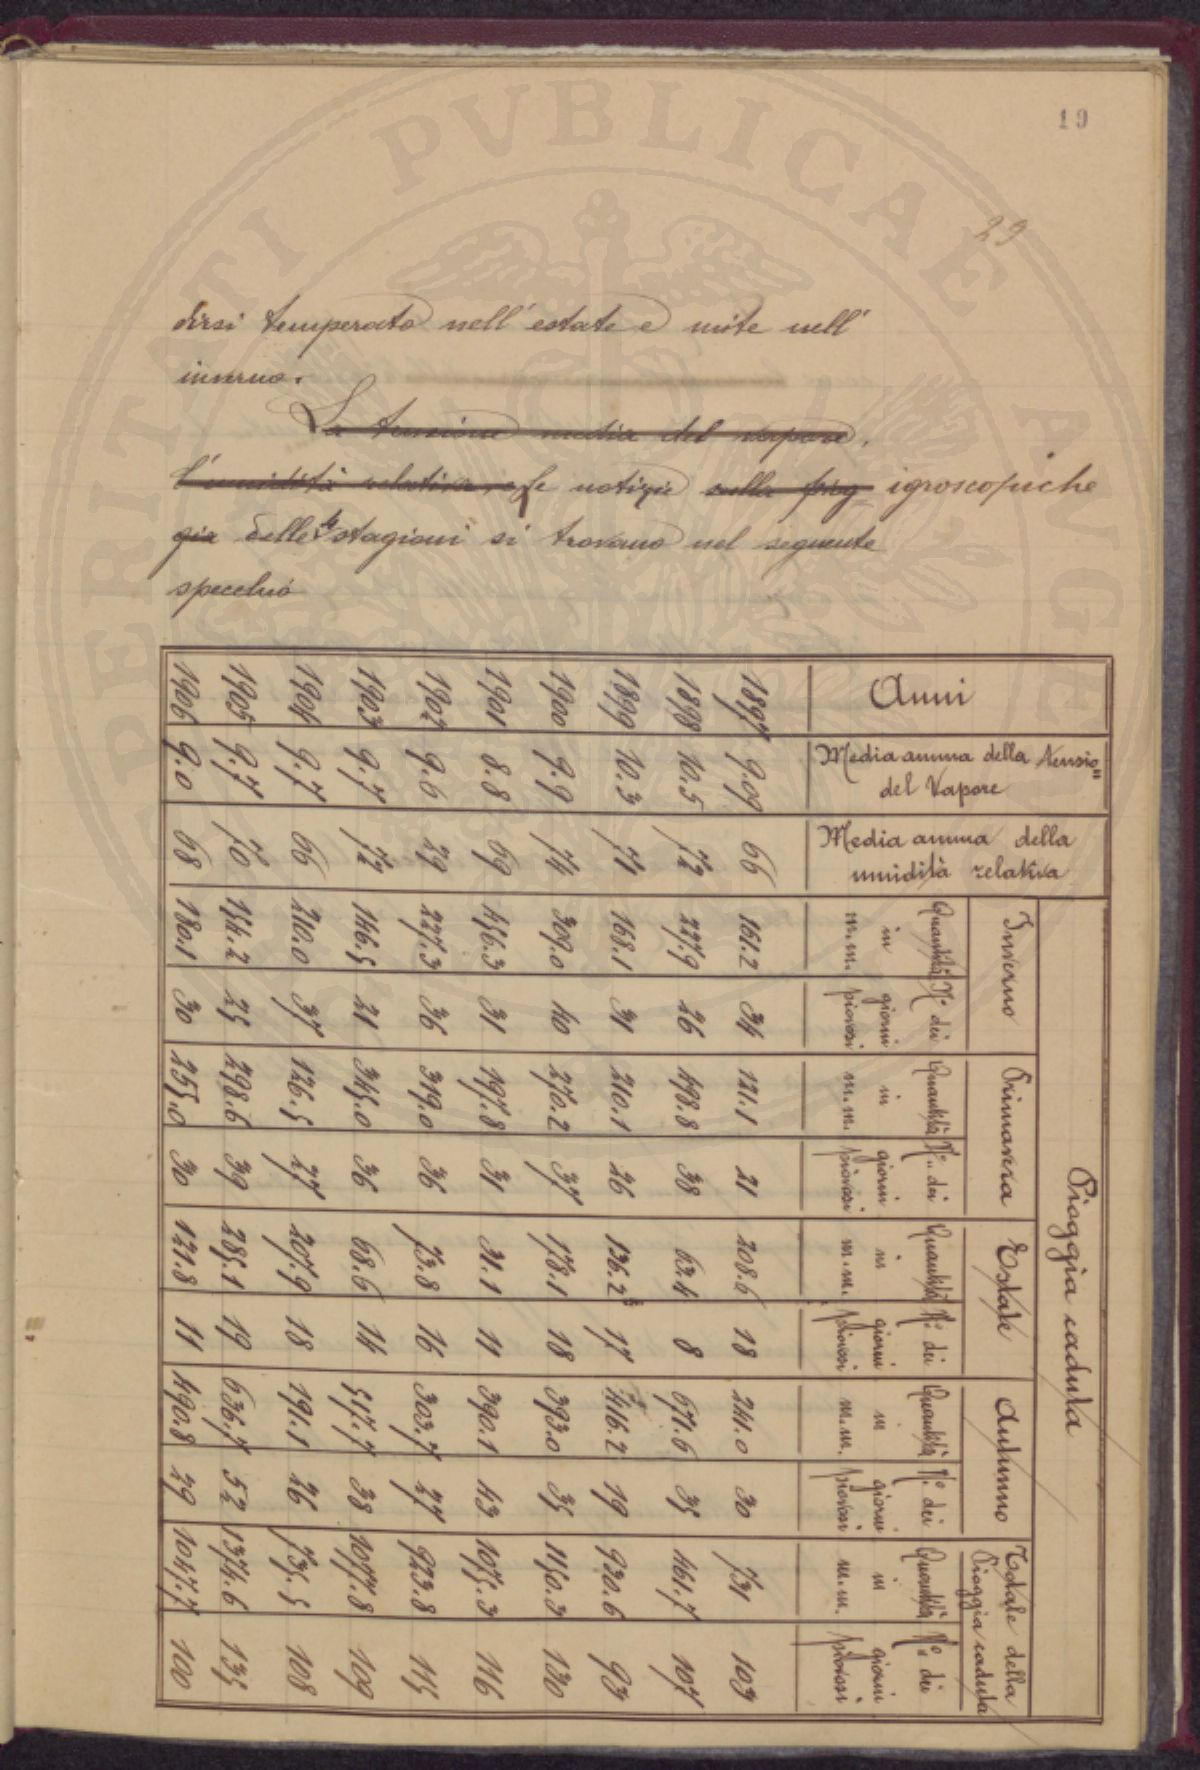 19
29
dirsi temperato nell'estate e mite nell'
inverno.
La tensione media del vapore,
l'umidità relativa, e le notizie sulla piog igroscopiche
gia delle 4 stagioni si trovano nel seguente
specchio
Anni | Media annua della Tensio" del Vapore | Media annua della umidità relativa | Pioggia caduta
Inverno | Primavera | Estate | Autunno | Totale della Pioggia caduta
Quantità in m.m. | N.° dei giorni piovosi | Quantità in m.m. | N.° dei giorni piovosi | Quantità in m.m. | N.° dei giorni piovosi | Quantità in m.m. | N.° dei giorni piovosi | Quantità in m.m. | N.° dei giorni piovosi
1897 | 9.09 | 66 | 161.2 | 34 | 121.1 | 21 | 208.6 | 18 | 241.0 | 30 | 731 | 103
1898 | 10.5 | 72 | 227.9 | 26 | 498.8 | 38 | 63.4 | 8 | 671.6 | 35 | 1461.7 | 107
1899 | 10.3 | 71 | 168.1 | 31 | 210.1 | 26 | 136.2 | 17 | 416.2 | 19 | 930.6 | 93
1900 | 9.9 | 74 | 309.0 | 40 | 270.2 | 37 | 178.1 | 18 | 393.0 | 35 | 1150.3 | 130
1901 | 8.8 | 69 | 456.3 | 31 | 197.8 | 31 | 31.1 | 11 | 390.1 | 43 | 1075.3 | 116
1902 | 9.6 | 29 | 227.3 | 36 | 319.0 | 36 | 73.8 | 16 | 303.7 | 27 | 923.8 | 115
1903 | 9.7 | 72 | 146.5 | 21 | 345.0 | 36 | 68.6 | 14 | 517.7 | 38 | 1077.8 | 109
1904 | 9.7 | 66 | 210.0 | 37 | 126.5 | 27 | 207.9 | 18 | 191.1 | 26 | 735.5 | 108
1905 | 9.7 | 70 | 154.2 | 25 | 298.6 | 39 | 285.1 | 19 | 636.7 | 52 | 1374.6 | 135
1906 | 9.0 | 68 | 180.1 | 30 | 255.0 | 30 | 121.8 | 11 | 490.8 | 29 | 1047.7 | 100
PERITATI PVBLICAE AVGE